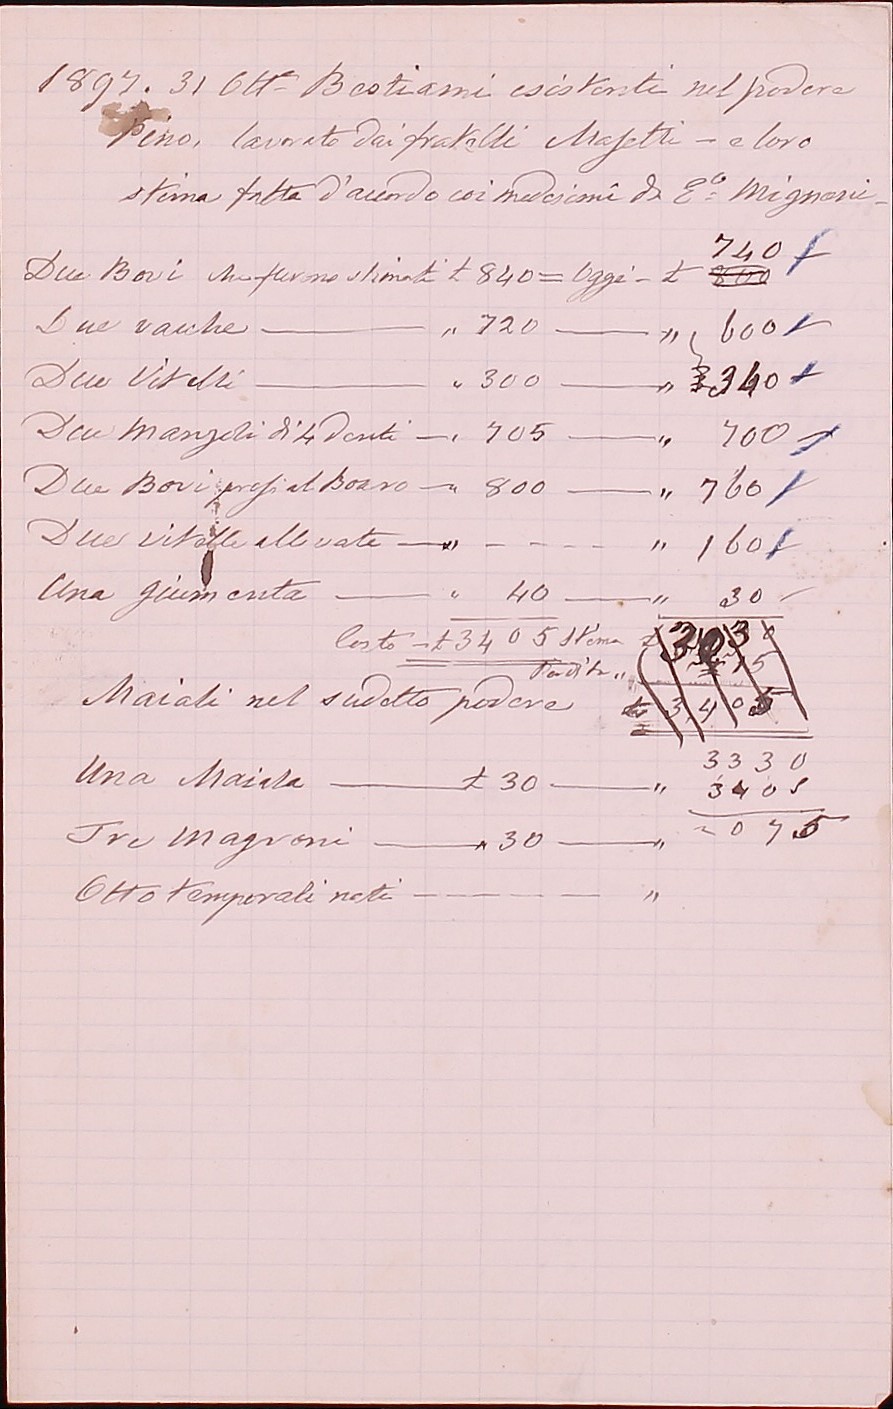 1897. 31 Ott.e Bestiami esistenti nel podere
Pino, lavorato dai fratelli Masetti - e loro
stima fatta d'accordo coi medesimi da E.o Mignani -
740
Due Bovi che furono stimati £ 840 = Oggi - £ 800
Due vacche — „ 720 — „ 600
Due Vitelli — „ 300 — „ 340
Due Manzoli di 4 denti — „ 705 — „ 700
Due Bovi presi al Boaro — „ 800 — „ 760
Due vitelle allevate — „ - - - - „ 160
Una Giumenta — „ 40 — „ 30
Costo - £ 3405 Stima £ 3030
Perdita „ 75
Maiali nel sudetto podere £ 3,405
3330
Una Maiala — £ 30 — „ 3405
Tre Magroni — „ 30 — „ - 075
Otto temporali nati - - - - „